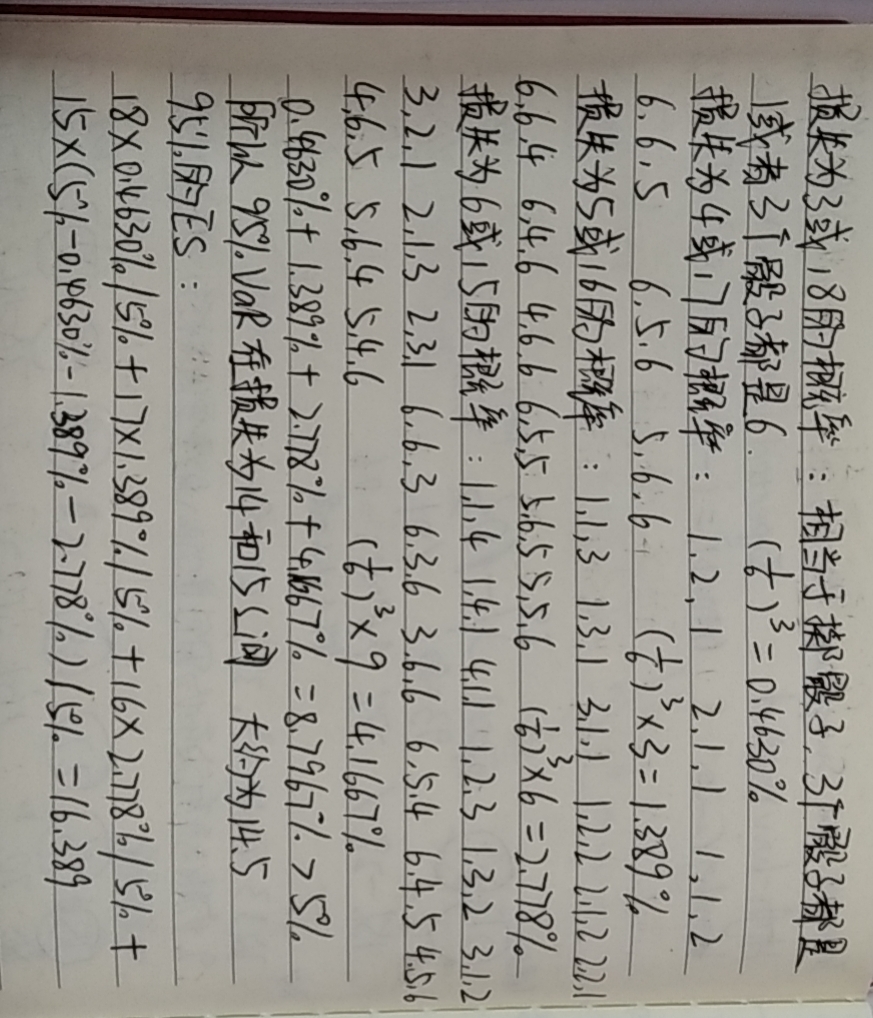 损失为3或18的概率：相当于掷骰子，3个骰子都是
1或者3个骰子都是6. (1/6)³=0.4630%
损失为4或17的概率： 1,2,1 2,1,1 1,1,2
6,6,5 6,5,6 5,6,6 (1/6)³×3=1.389%
损失为5或16的概率：1,1,3 1,3,1 3,1,1 1,2,2 2,1,2 2,2,1
6,6,4 6,4,6 4,6,6 6,5,5 5,6,5 5,5,6 (1/6)³×6=2.778%
损失为6或15的概率：1,1,4 1,4,1 4,1,1 1,2,3 1,3,2 3,1,2
3,2,1 2,1,3 2,3,1 6,6,3 6,3,6 3,6,6 6,5,4 6,4,5 4,5,6
4,6,5 5,6,4 5,4,6 (1/6)³×9=4.1667%
0.4630%+1.389%+2.778%+4.1667%=8.7967%>5%
所以95%VaR在损失为14和15之间 大约为14.5
95%的ES：
18×0.4630%/5%+17×1.389%/5%+16×2.778%/5%+
15×(5%-0.4630%-1.389%-2.778%)/5%=16.389